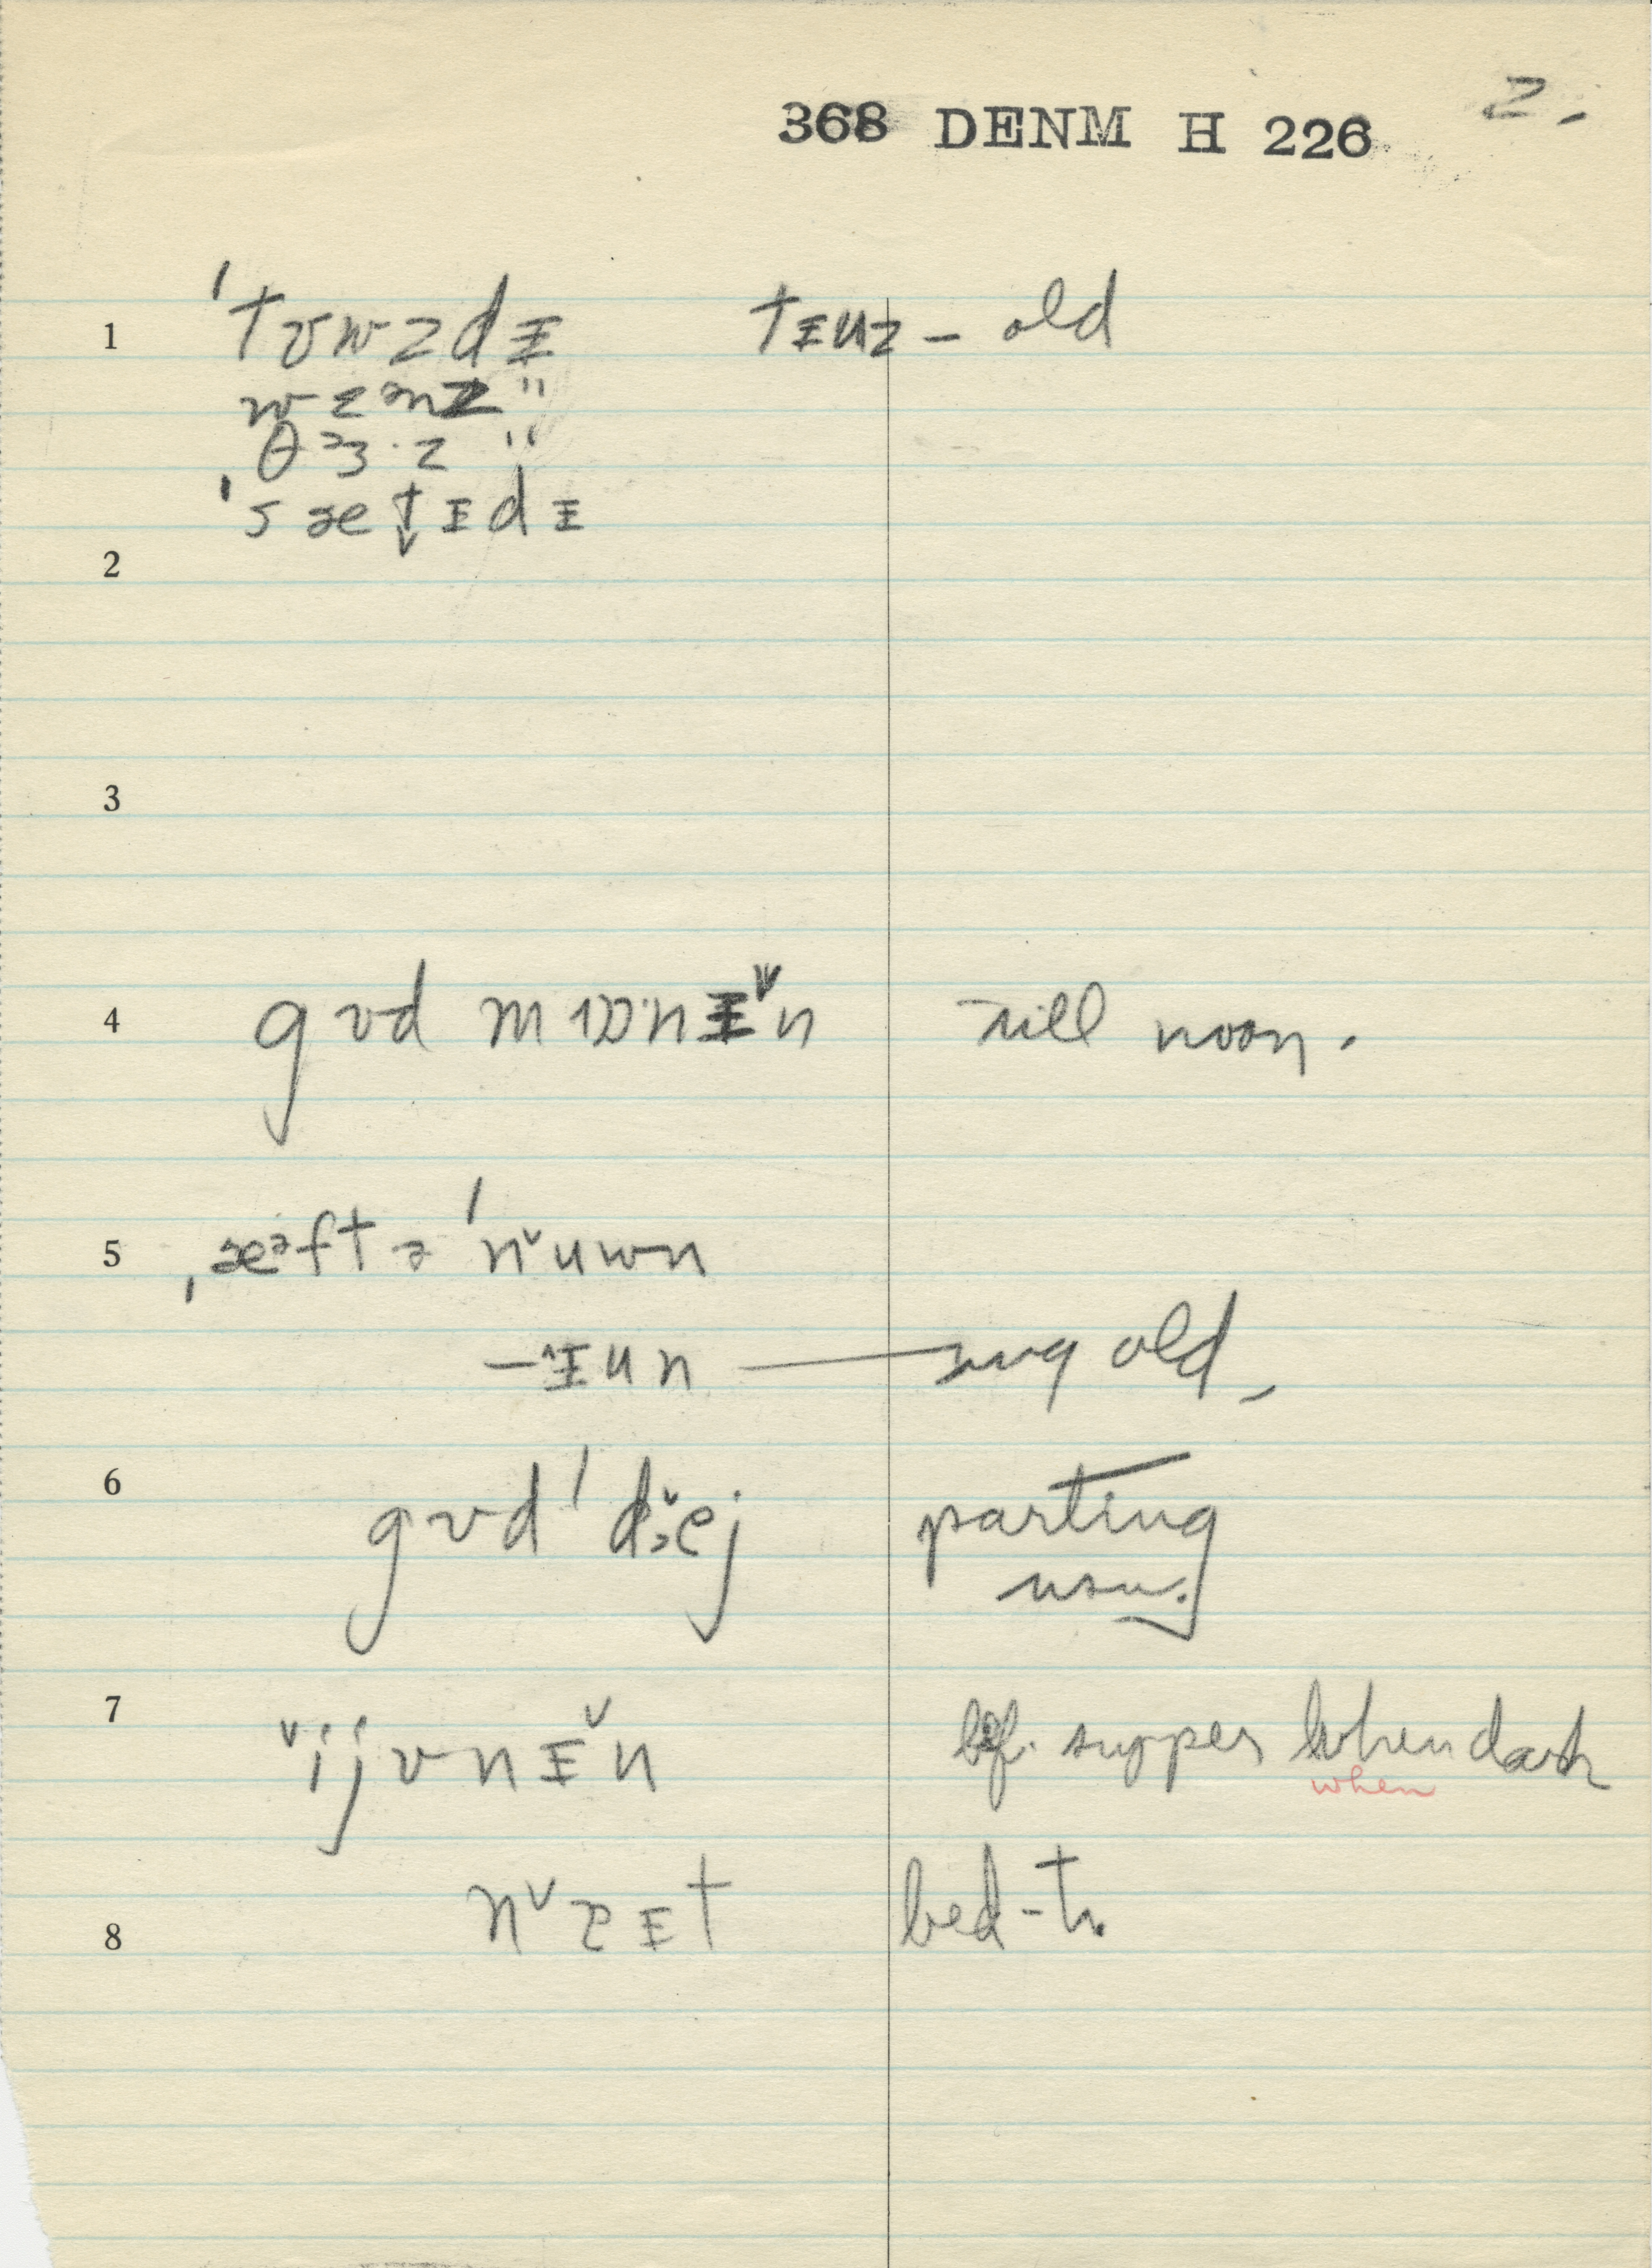 2.
368 DENM H 226
1 ˈtʊwzdᵻ tᵻuz – old
wɛnz "
ˌθɜ·z "
ˈsætᵻdᵻ
2
3
4 gʊd mɒ·nᵻn till noon.
5 ˌæᵊftəˈnuwn
–ᵻun — mg old,
6 gʊdˈdɛej parting
usu.
7 ijvnᵻn bef. supper when dark
when
8 nɐᵻt bed-t.